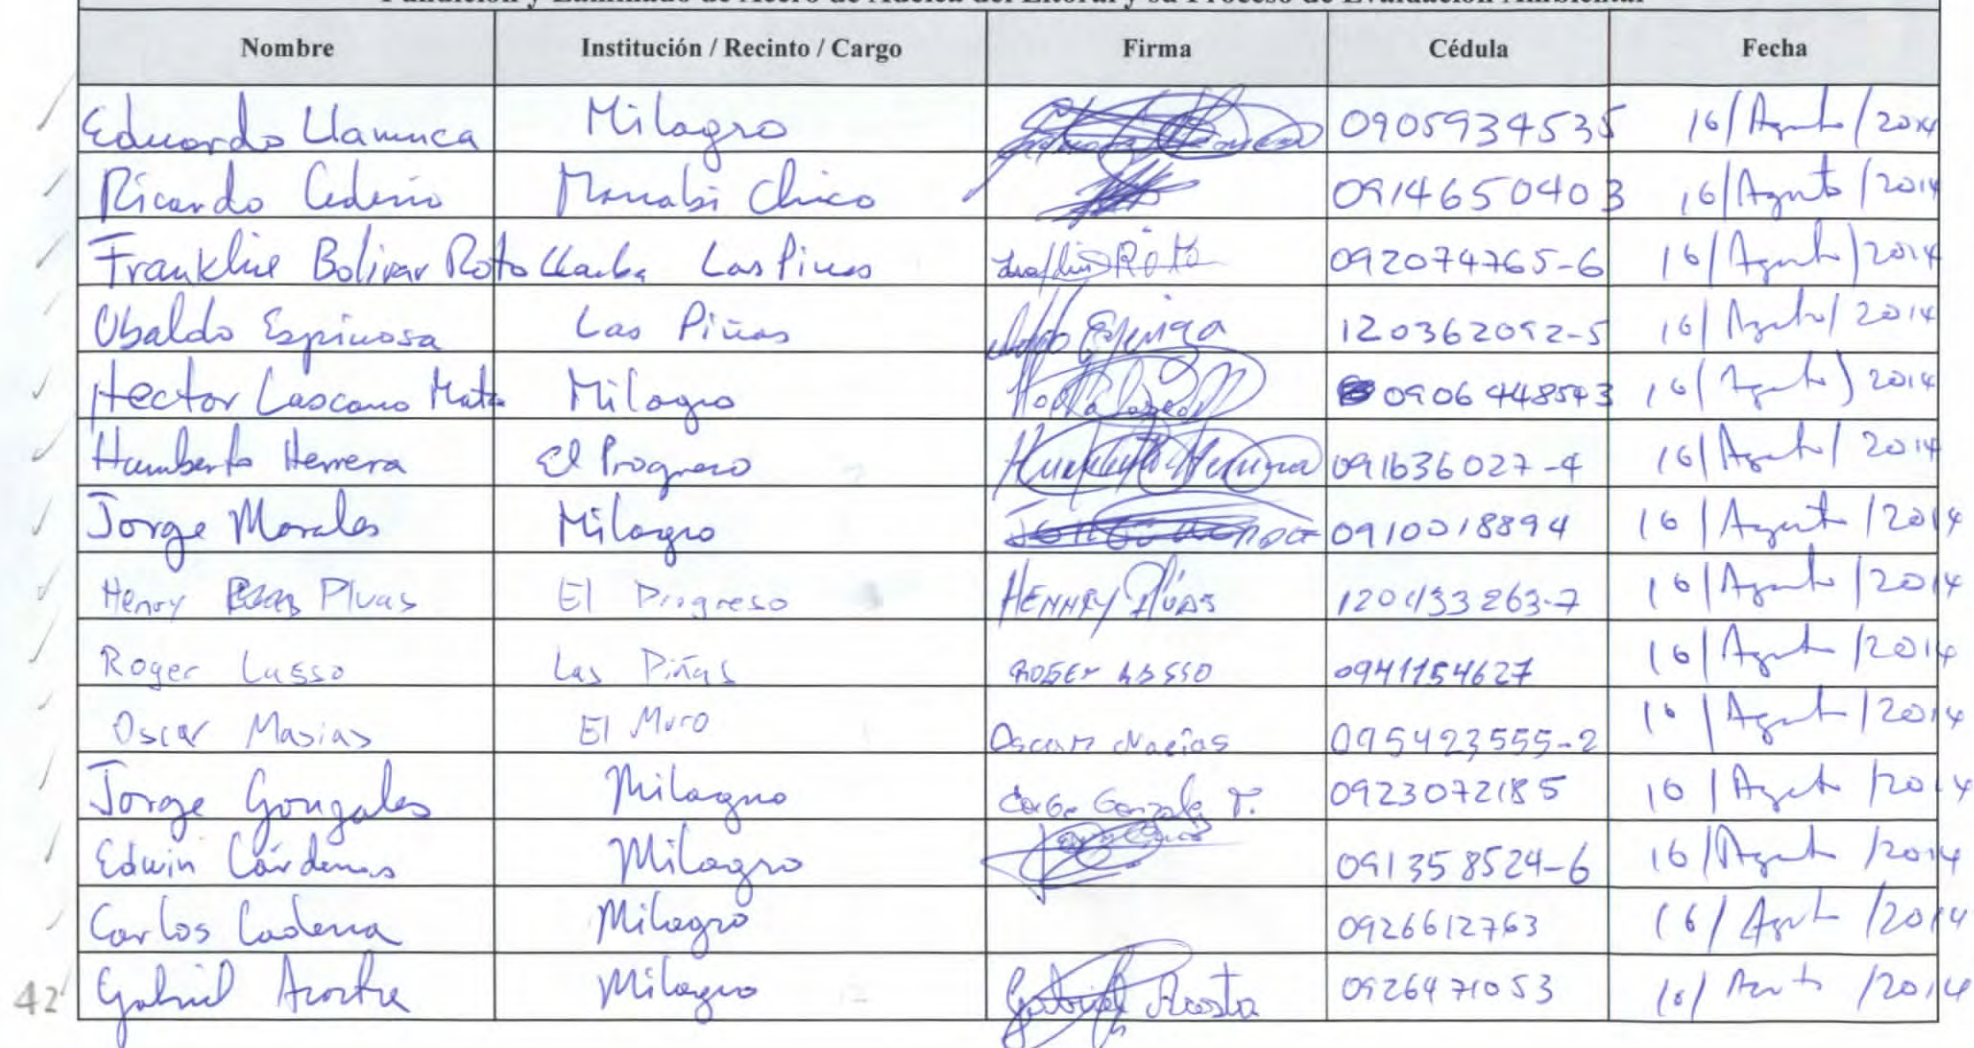 Fundición y Laminado de Acero de Adelca del Litoral y su Proceso de Evaluación Ambiental
Nombre Institución / Recinto / Cargo Firma Cédula Fecha
Eduardo Llamuca Milagro 0905934535 16/Agosto/2014
Ricardo Cedeño Manabi Chico 0914650403 16/Agosto/2014
Franklin Bolivar Roto Las Piñas Róto 092074765-6 16/Agosto/2014
Ubaldo Espinosa Las Piñas 120362092-5 16/Agosto/2014
Hector Lascano Mata Milagro 0906448543 16/Agosto/2014
Humberto Herrera El Progreso Humberto Herrera 091636027-4 16/Agosto/2014
Jorge Morales Milagro 0910018894 16/Agosto/2014
Henry Pluas El Progreso HENRRY PLÚAS 120433263-7 16/Agosto/2014
Roger Lasso Las Piñas ROGER LASSO 0941154627 16/Agosto/2014
Oscar Masias El Muro Oscar Macías 095423555-2 16/Agosto/2014
Jorge Gonzales Milagro Gonzale T. 0923072185 16/Agosto/2014
Edwin Cárdenas Milagro 091358524-6 16/Agosto/2014
Carlos Cadena Milagro 0926612763 16/Agosto/2014
42 Gabriel Acosta Milagro Gabriel Acosta 0926471053 16/Agosto/2014